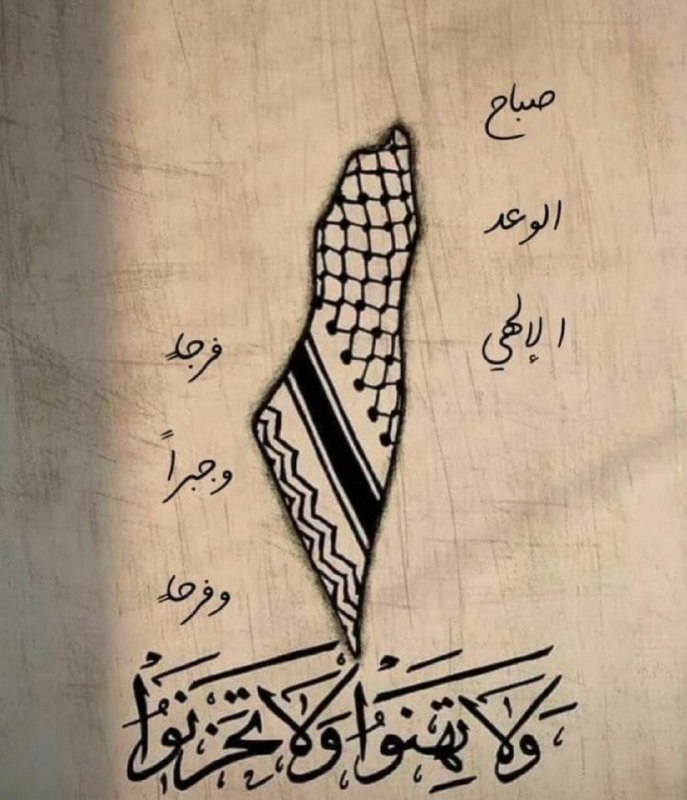 صباح
الوعد
الإلهي
فرجاً
وجبراً
وفرحاً
وَلَا تَهِنُوا وَلَا تَحْزَنُوا